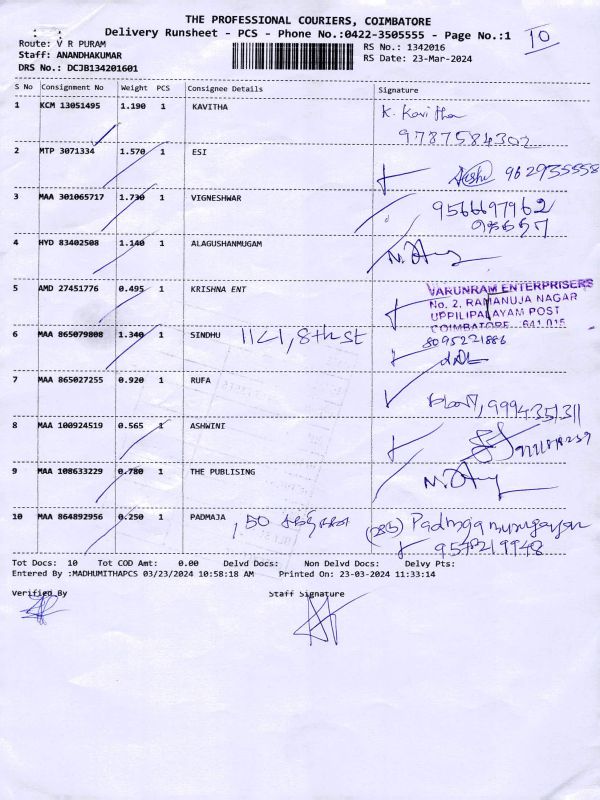 THE PROFESSIONAL COURIERS, COIMBATORE
Delivery Runsheet - PCS - Phone No.:0422-3505555 - Page No.:1
10
Route: V R PURAM
RS No.: 1342016
Staff: ANANDHAKUMAR
RS Date: 23-Mar-2024
DRS No.: DCJB134201601
S No Consignment No Weight PCS Consignee Details Signature
1 KCM 13051495 1.190 1 KAVITHA K. Kavitha
9787584302
2 MTP 3071334 1.570 1 ESI
9629355558
3 MAA 301065717 1.730 1 VIGNESHWAR 9566697962
4 HYD 83402508 1.140 1 ALAGUSHANMUGAM
5 AMD 27451776 0.495 1 KRISHNA ENT VARUNRAM ENTERPRISERS
No. 2, RAMANUJA NAGAR
UPPILIPALAYAM POST
COIMBATORE 641 015
6 MAA 865079808 1.340 1 SINDHU 11<1, 8th st 8095221886
7 MAA 865027255 0.920 1 RUFA
9994351311
8 MAA 100924519 0.565 1 ASHWINI
9 MAA 108633229 0.780 1 THE PUBLISING
10 MAA 864892956 0.250 1 PADMAJA , 50 Padmaja murugayan
9578219948
Tot Docs: 10 Tot COD Amt: 0.00 Delvd Docs: Non Delvd Docs: Delvy Pts:
Entered By :MADHUMITHAPCS 03/23/2024 10:58:18 AM Printed On: 23-03-2024 11:33:14
Verified By Staff Signature